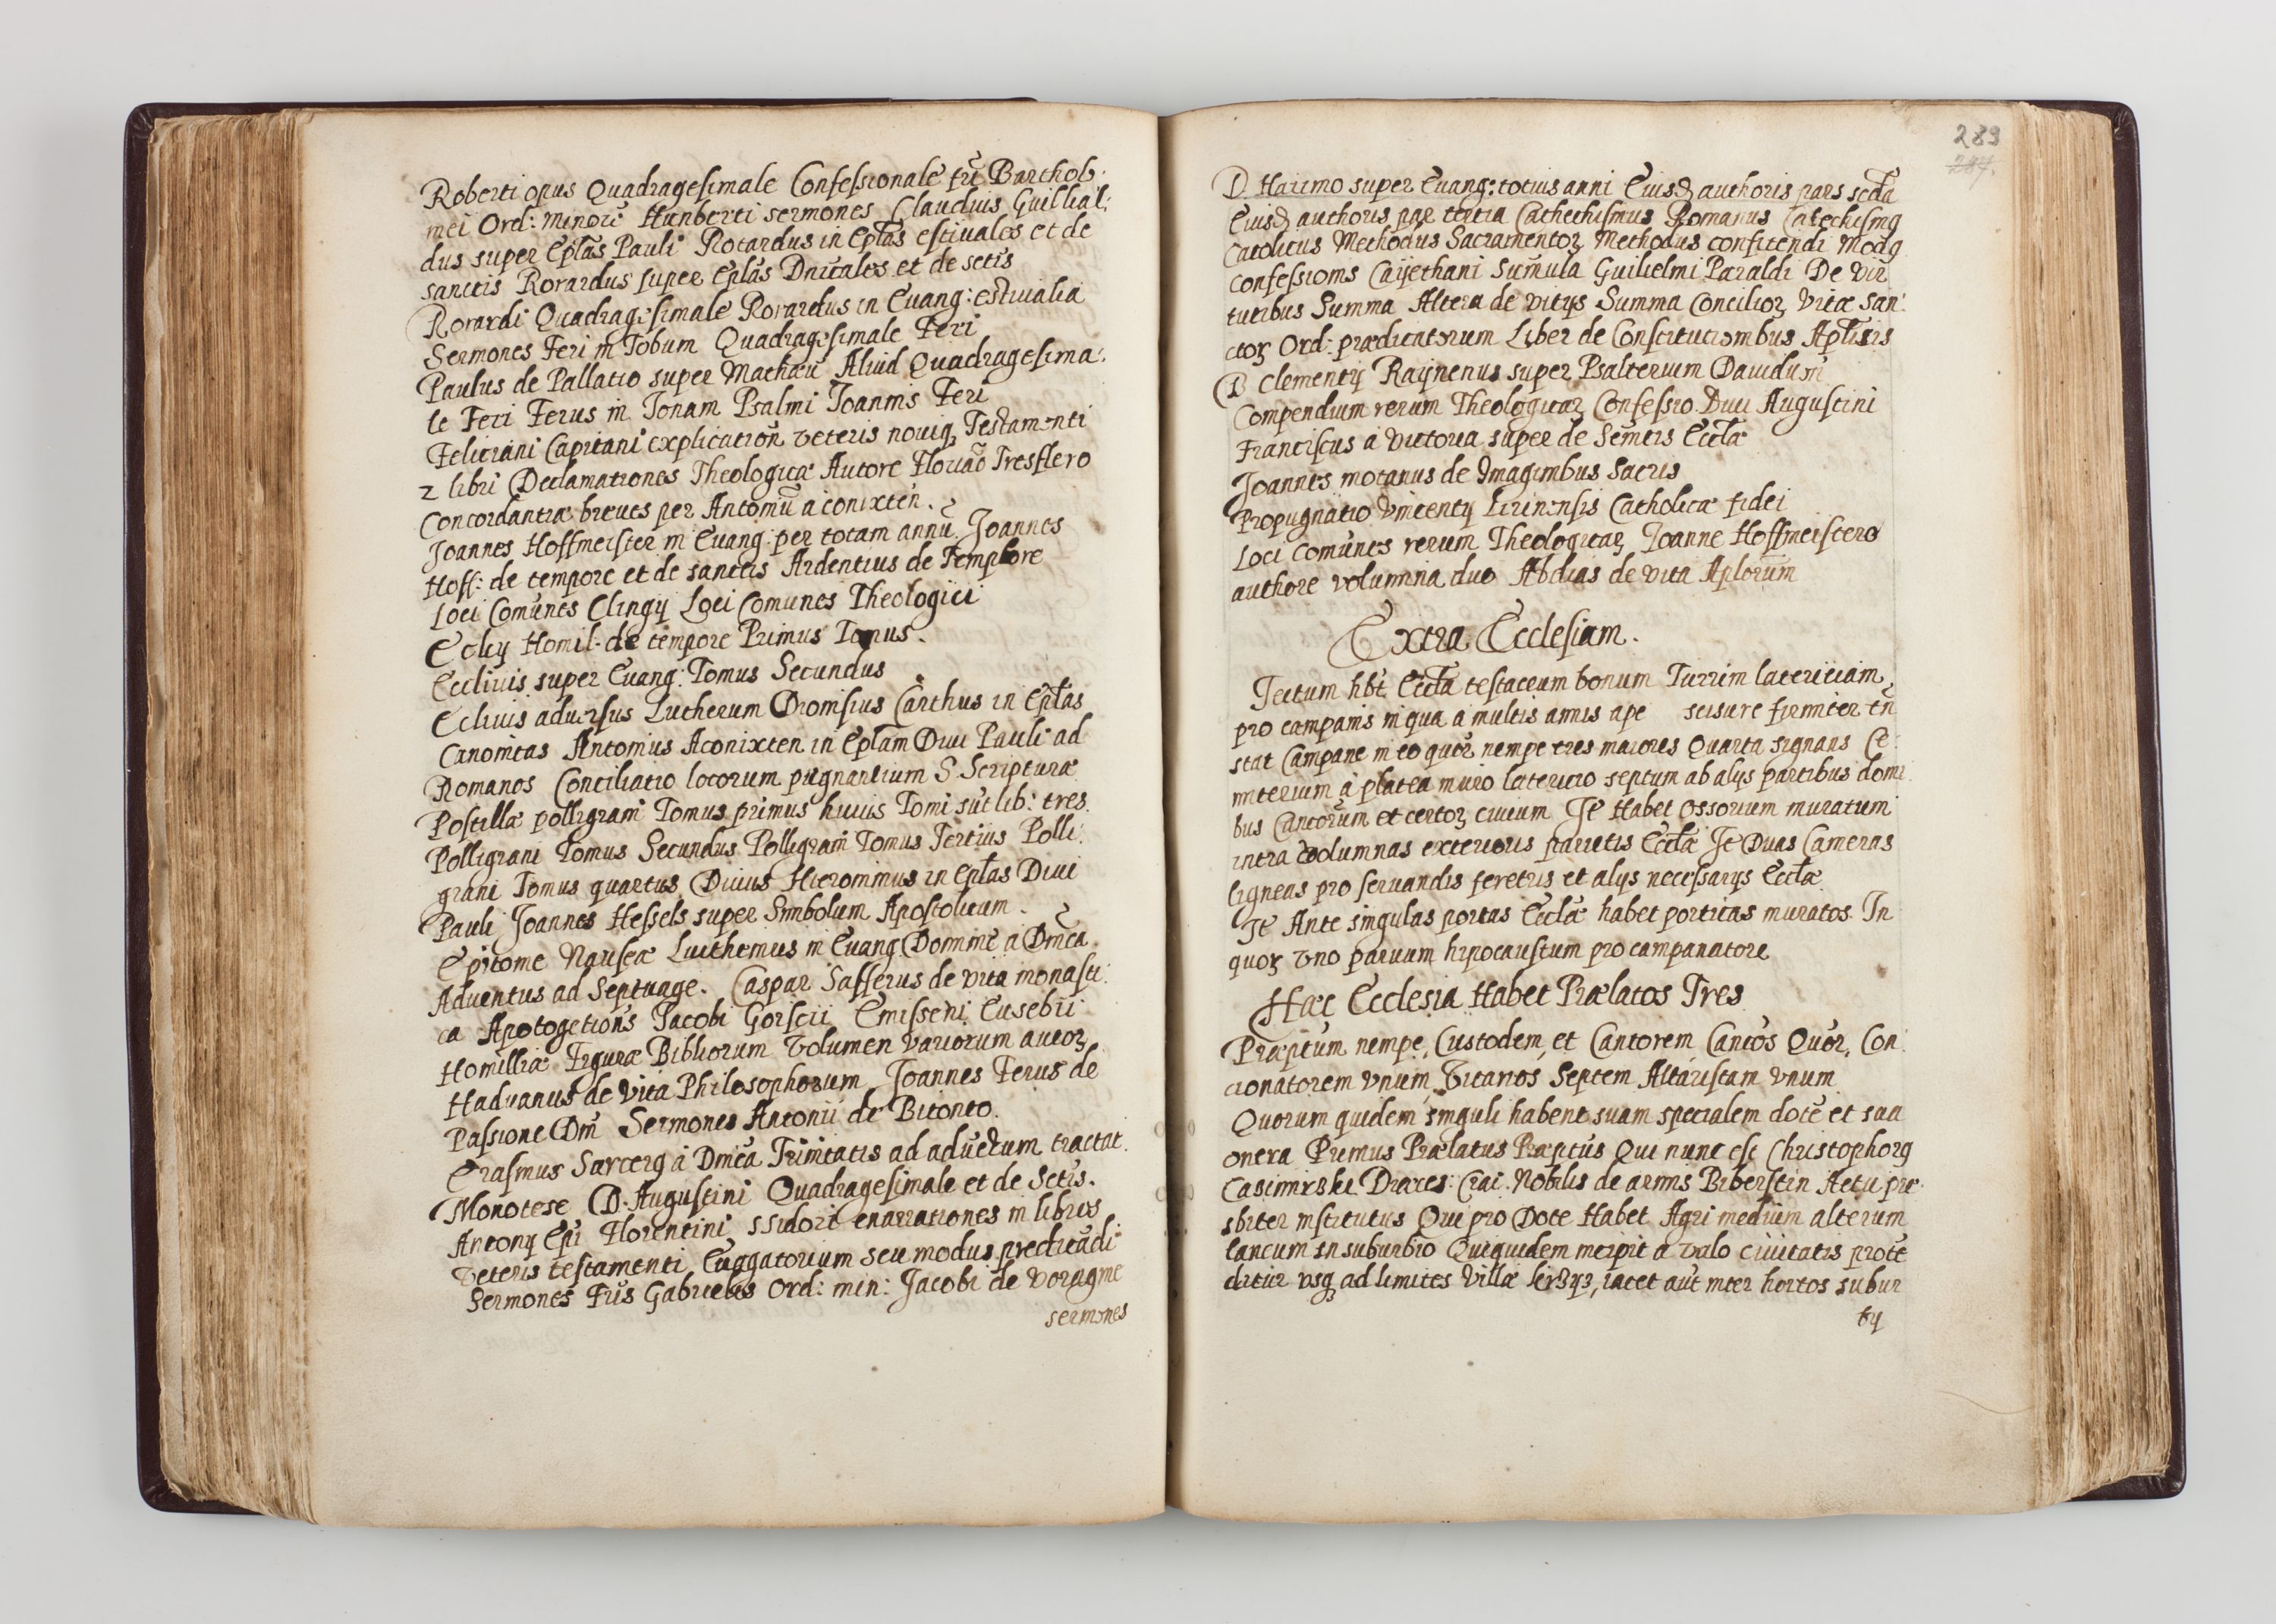 Roberti opus Quadragesimale Confessionale frū Barthol:
mei Ord: Minorū Hunberti sermones Claudius Guilliāl:
dus super Eplās Pauli Rotardus in Eplās estiuales et de
sanctis Rorardus super Eplās Dnicales et de sctis
Rorardi Quadragesimale Rorardus in Euang: estiualia
Sermones Feri in Iobum Quadragesimale Feri
Paulus de Pallatio super Mathæū Aliud Quadragesima:
le Feri Ferus in Ionam Psalmi Ioannis Feri
Feliciani Capitani explication veteris nouiq Testamenti
2 libri Declamationes Theologicæ Autore Floriāo Tresflero
Concordantiæ breues per Antoniū a conixten.
Joannes Hoffmeister in Euang: per totam annū Joannes
Hoff: de tempore et de sanctis Ardentius de Temptore
Loci Comūnes Clingij Loci Comunes Theologici
Eckij Homil. de tempore Primus Tomus.
Ecclius super Euang: Tomus Secundus
Eclius aduersus Lutherum Dionisius Carthus in Eplās
Canonicas Antonius Aconixten in Eplām Diui Pauli ad
Romanos Conciliatio locorum pugnantium S. Scripturæ
Postillæ polligrani Tomus primus huius Tomi sūt lib: tres.
Polligrani Tomus Secundus Polligrani Tomus Tertius Polli:
grani Tomus quartus Diuus Hieronimus in Eplās Diui
Pauli Joannes Hessels super Simbolum Apostolicum.
Epitome Nauseæ Luithemus in Euang Dominic a Dmcā
Aduentus ad Septuage. Caspar Safferus de vita monasti:
ca Apotogetions Jacobi Gorscii Emisseni Eusebii
Homilliæ Figuræ Bibliorum Volumen variorum autorꝝ
Haduanus de vita Philosophorum Joannes Ferus de
Passione Dni Sermones Antonii de Bitonto.
Erasmus Sarcerꝰ a Dmcā Trinitatis ad aduētum tractat.
Monotese D. Augustini Quadragesimale et de Sctis.
Antonij Epi Florentini ssidori enarrationes in libros
veteris testamenti, Euagatorium seu modus predicādi
Sermones Fris Gabrielis Ord: min: Jacobi de Voragine
sermones
289
287.
D. Haiimo super Euang: totius anni Eiusd authoris pars scda
Eiusd authoris par tertia Cathechismus Romanus Catechismꝰ
Catolicus Methodus Sacramentorꝝ Methodus confitendi Modꝰ
confessionis Caijethani Sumula Guilielmi Paraldi De vir
tutibus Summa Altera de vitijs Summa Conciliorꝝ Vitæ San:
ctorꝝ Ord: prædicatorum Liber de Constitutionibus Aplisis
D Clementij Raijnenus super Psalterium Dauidum
Compendium rerum Theologicarꝝ Confessio Diui Augustini
Franciscus a victoria super de Semtis Ecclæ
Joannes motanus de Imaginibus Sacris
Propugnatio Vincentij Lirinensis Catholicæ fidei
Loci comūnes rerum Theologicarꝝ Joanne Hoffmeistero
authore volumina duo Abdias de vita Aplorum
Extra Ecclesiam.
Tectum hbt Eccla testaceum bonum Turrim latericiam
pro campanis in qua a multis annis ape scisure firmiter tn
stat Campane in eo quor nempe tres maiores Quarta signans Ce:
miterium a platea muro latericio septum ab alijs partibus domi
bus Cantorum et certorꝝ ciuium Jt Habet ossorium muratum
intra columnas exterioris parietis Ecclæ Jt Duas Cameras
ligneas pro seruandis feretris et alijs necessarijs Ecclæ
Jt Ante singulas portas Ecclæ habet porticas muratos In
quorꝝ vno paruum hipocaustum pro campanatore
Hæc Ecclesia Habet Prælatos Tres
Præptum nempe, Custodem, et Cantorem Cantōs Quor, Con
cionatorem vnum, Vicarios Septem Altaristam vnum
Quorum quidem singuli habent suam specialem dotē et sua
onera Primus Prælatus Præptus Qui nunc est Christophorꝰ
Casimirski Dioces: Crai: Nobilis de armis Biberstin Aetu pre
sbiter institutus Qui pro Dote Habet Agri medium alterum
laneum in suburbio Qui quidem incipit a valo ciuitatis prote
ditur vsqꝫ ad limites Villæ, iacet aut inter hortos subur
bij